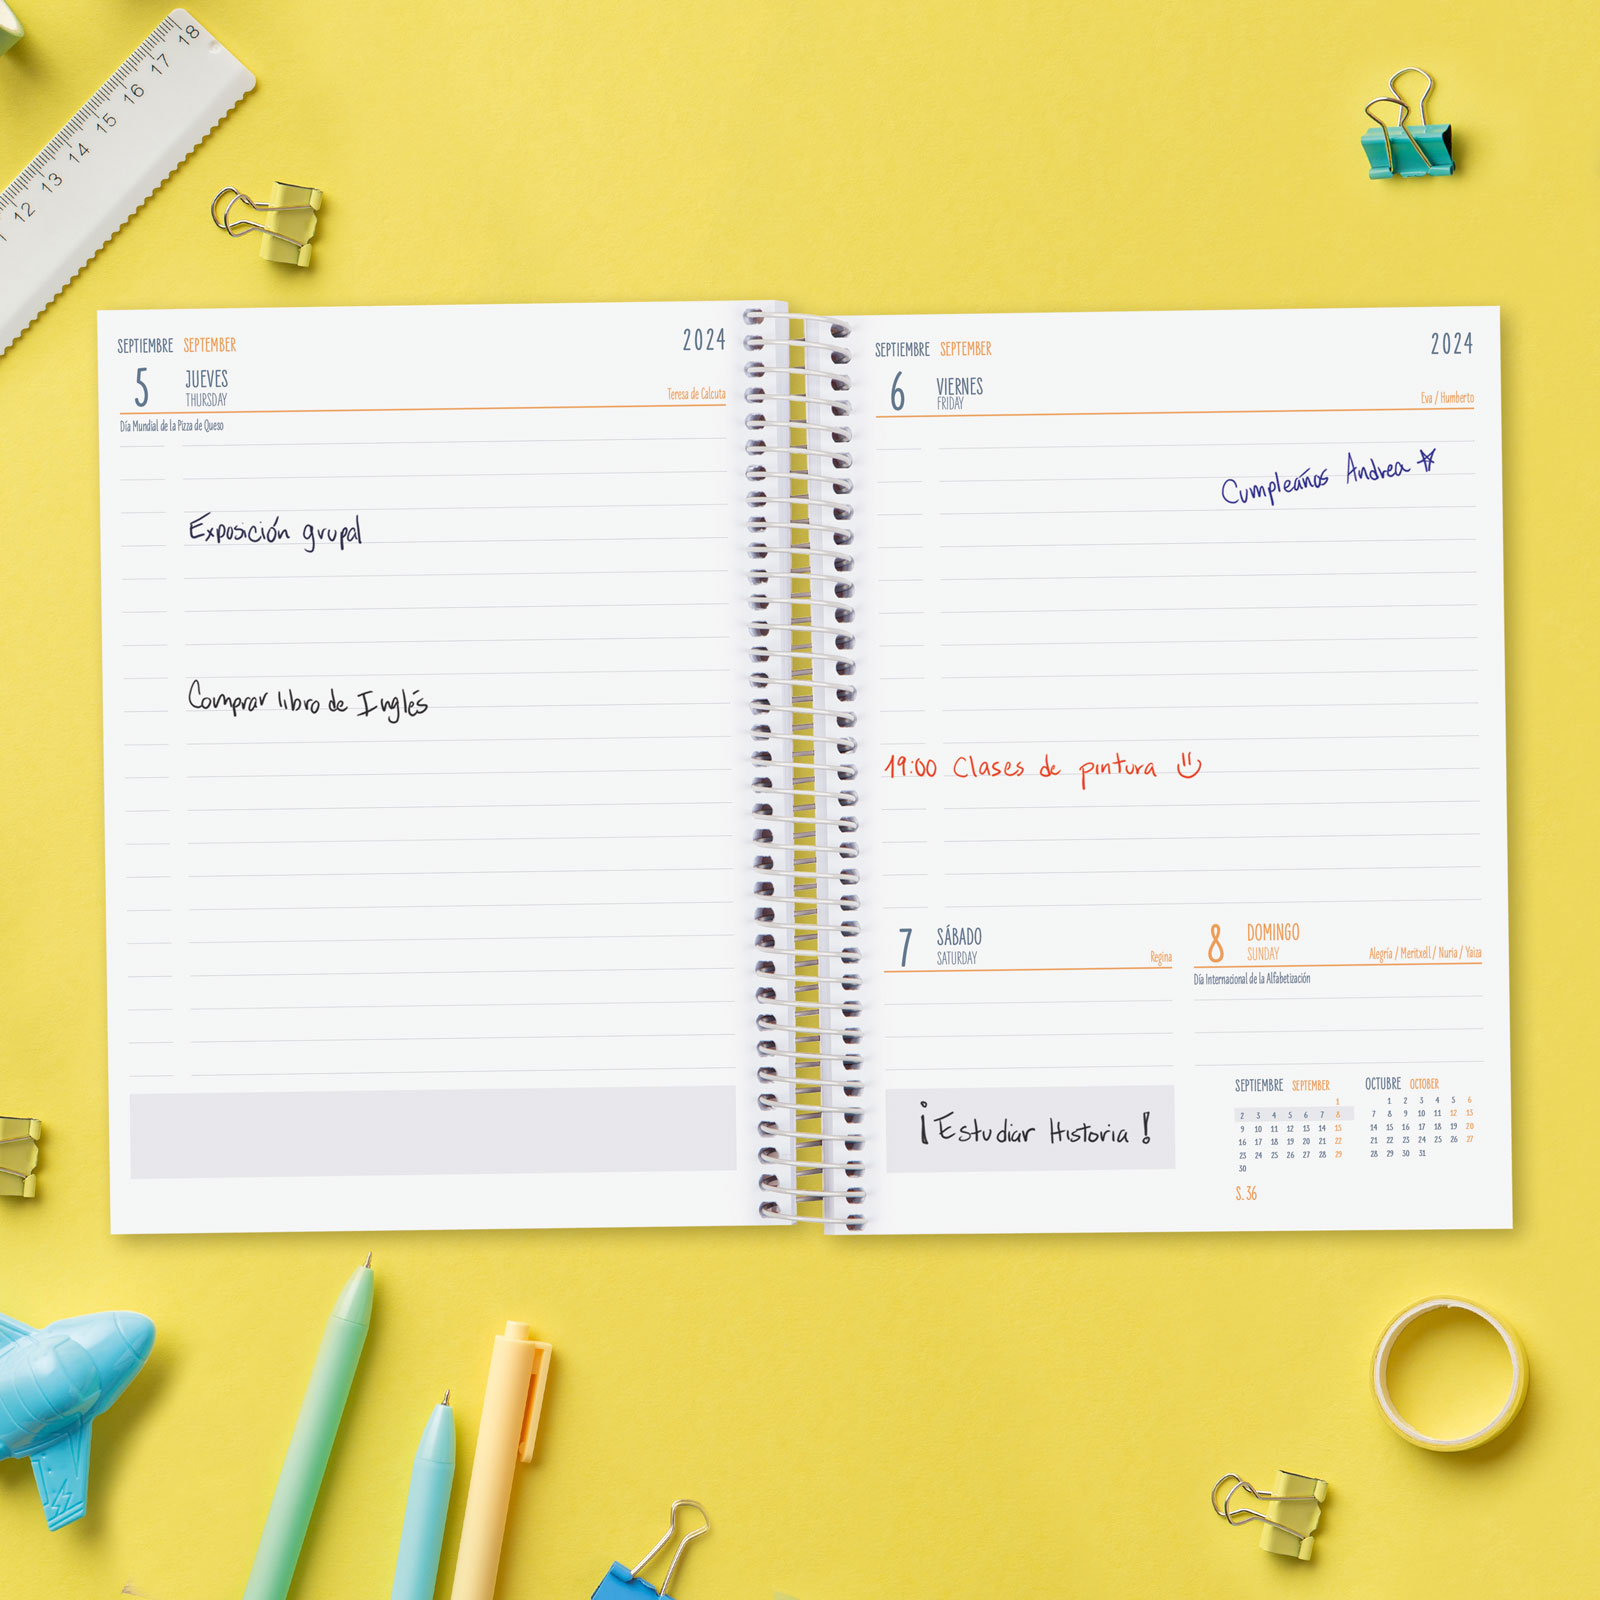 12 13 14 15 16 17 18
SEPTIEMBRE SEPTEMBER 2024
5 JUEVES
THURSDAY
Teresa de Calcuta
Día Mundial de la Pizza de Queso
Exposición grupal
Comprar libro de Inglés
SEPTIEMBRE SEPTEMBER 2024
6 VIERNES
FRIDAY
Eva / Humberto
Cumpleaños Andrea
19:00 Clases de pintura
7 SÁBADO
SATURDAY
Regina
8 DOMINGO
SUNDAY
Alegría / Meritxell / Nuria / Yaiza
Día Internacional de la Alfabetización
¡Estudiar Historia!
SEPTIEMBRE SEPTEMBER
1
2 3 4 5 6 7 8
9 10 11 12 13 14 15
16 17 18 19 20 21 22
23 24 25 26 27 28 29
30
S. 36
OCTUBRE OCTOBER
1 2 3 4 5 6
7 8 9 10 11 12 13
14 15 16 17 18 19 20
21 22 23 24 25 26 27
28 29 30 31